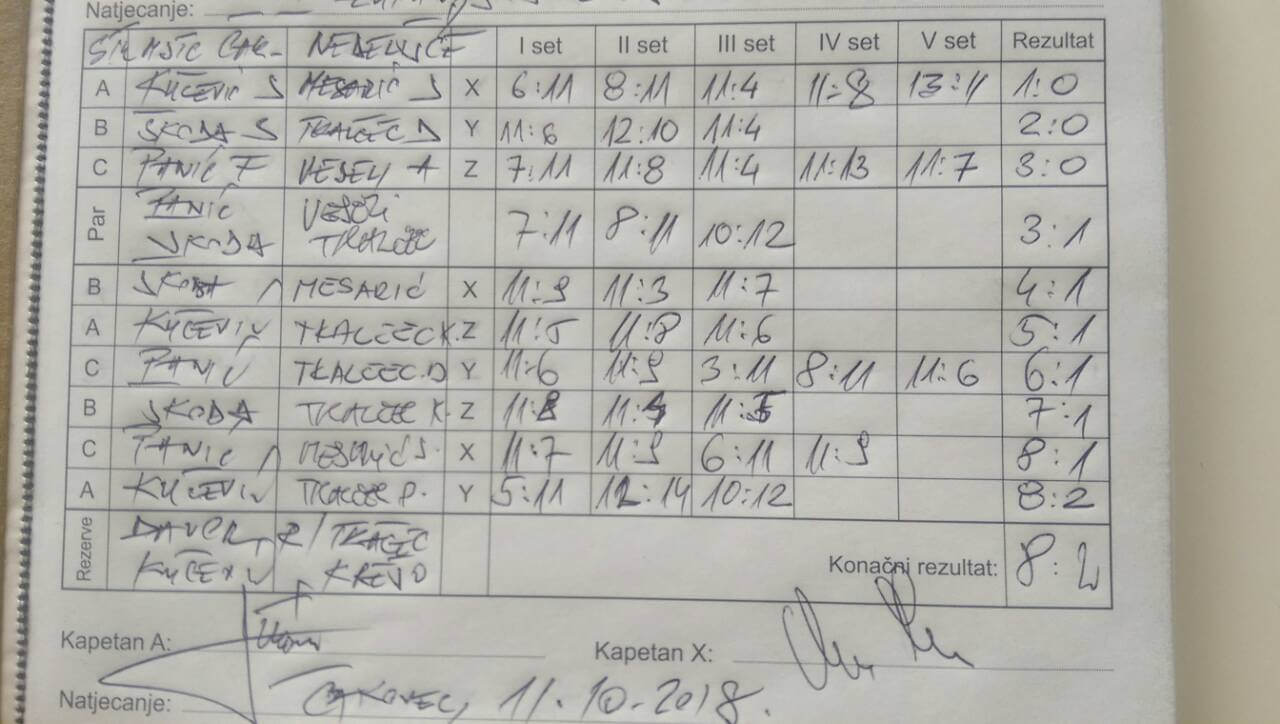 Natjecanje:
NEDELIŠĆE I set II set III set IV set V set Rezultat
A KUČEVIĆ S MESARIĆ S X 6:11 8:11 11:4 11:8 13:11 1:0
B ŠKODA S TKALČEC D Y 11:6 12:10 11:4 2:0
C PANIĆ F VESELI A Z 7:11 11:8 11:4 11:13 11:7 3:0
Par PANIĆ VESELI
ŠKODA TKALČEC 7:11 8:11 10:12 3:1
B ŠKODA MESARIĆ X 11:9 11:3 11:7 4:1
A KUČEVIĆ TKALČEC K. Z 11:5 11:8 11:6 5:1
C PANIĆ TKALČEC D Y 11:6 11:9 3:11 8:11 11:6 6:1
B ŠKODA TKALČEC K. Z 11: 11: 11:5 7:1
C PANIĆ MESARIĆ S. X 11:7 11:9 6:11 11:9 8:1
A KUČEVIĆ TKALČEC D. Y 5:11 12:14 10:12 8:2
Rezerve
KUČEVIĆ Konačni rezultat: 8:2
Kapetan A: Kapetan X:
Natjecanje: Čakovec, 11.10.2018.